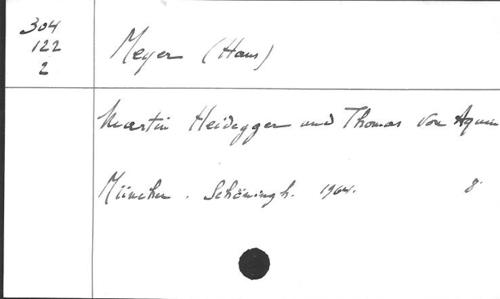 304
122
2
Meyer (Hans)
Martin Heidegger und Thomas von Aquin
München. Schöningh. 1964. 8°